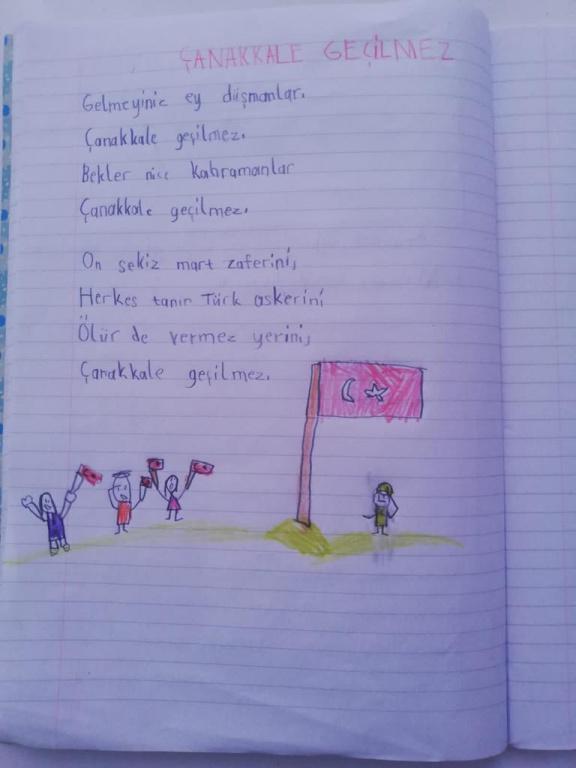 ÇANAKKALE GEÇİLMEZ
Gelmeyiniz ey düşmanlar.
Çanakkale geçilmez.
Bekler nice kahramanlar
Çanakkale geçilmez.
On sekiz mart zaferini,
Herkes tanır Türk askerini
Ölür de vermez yerini,
Çanakkale geçilmez.